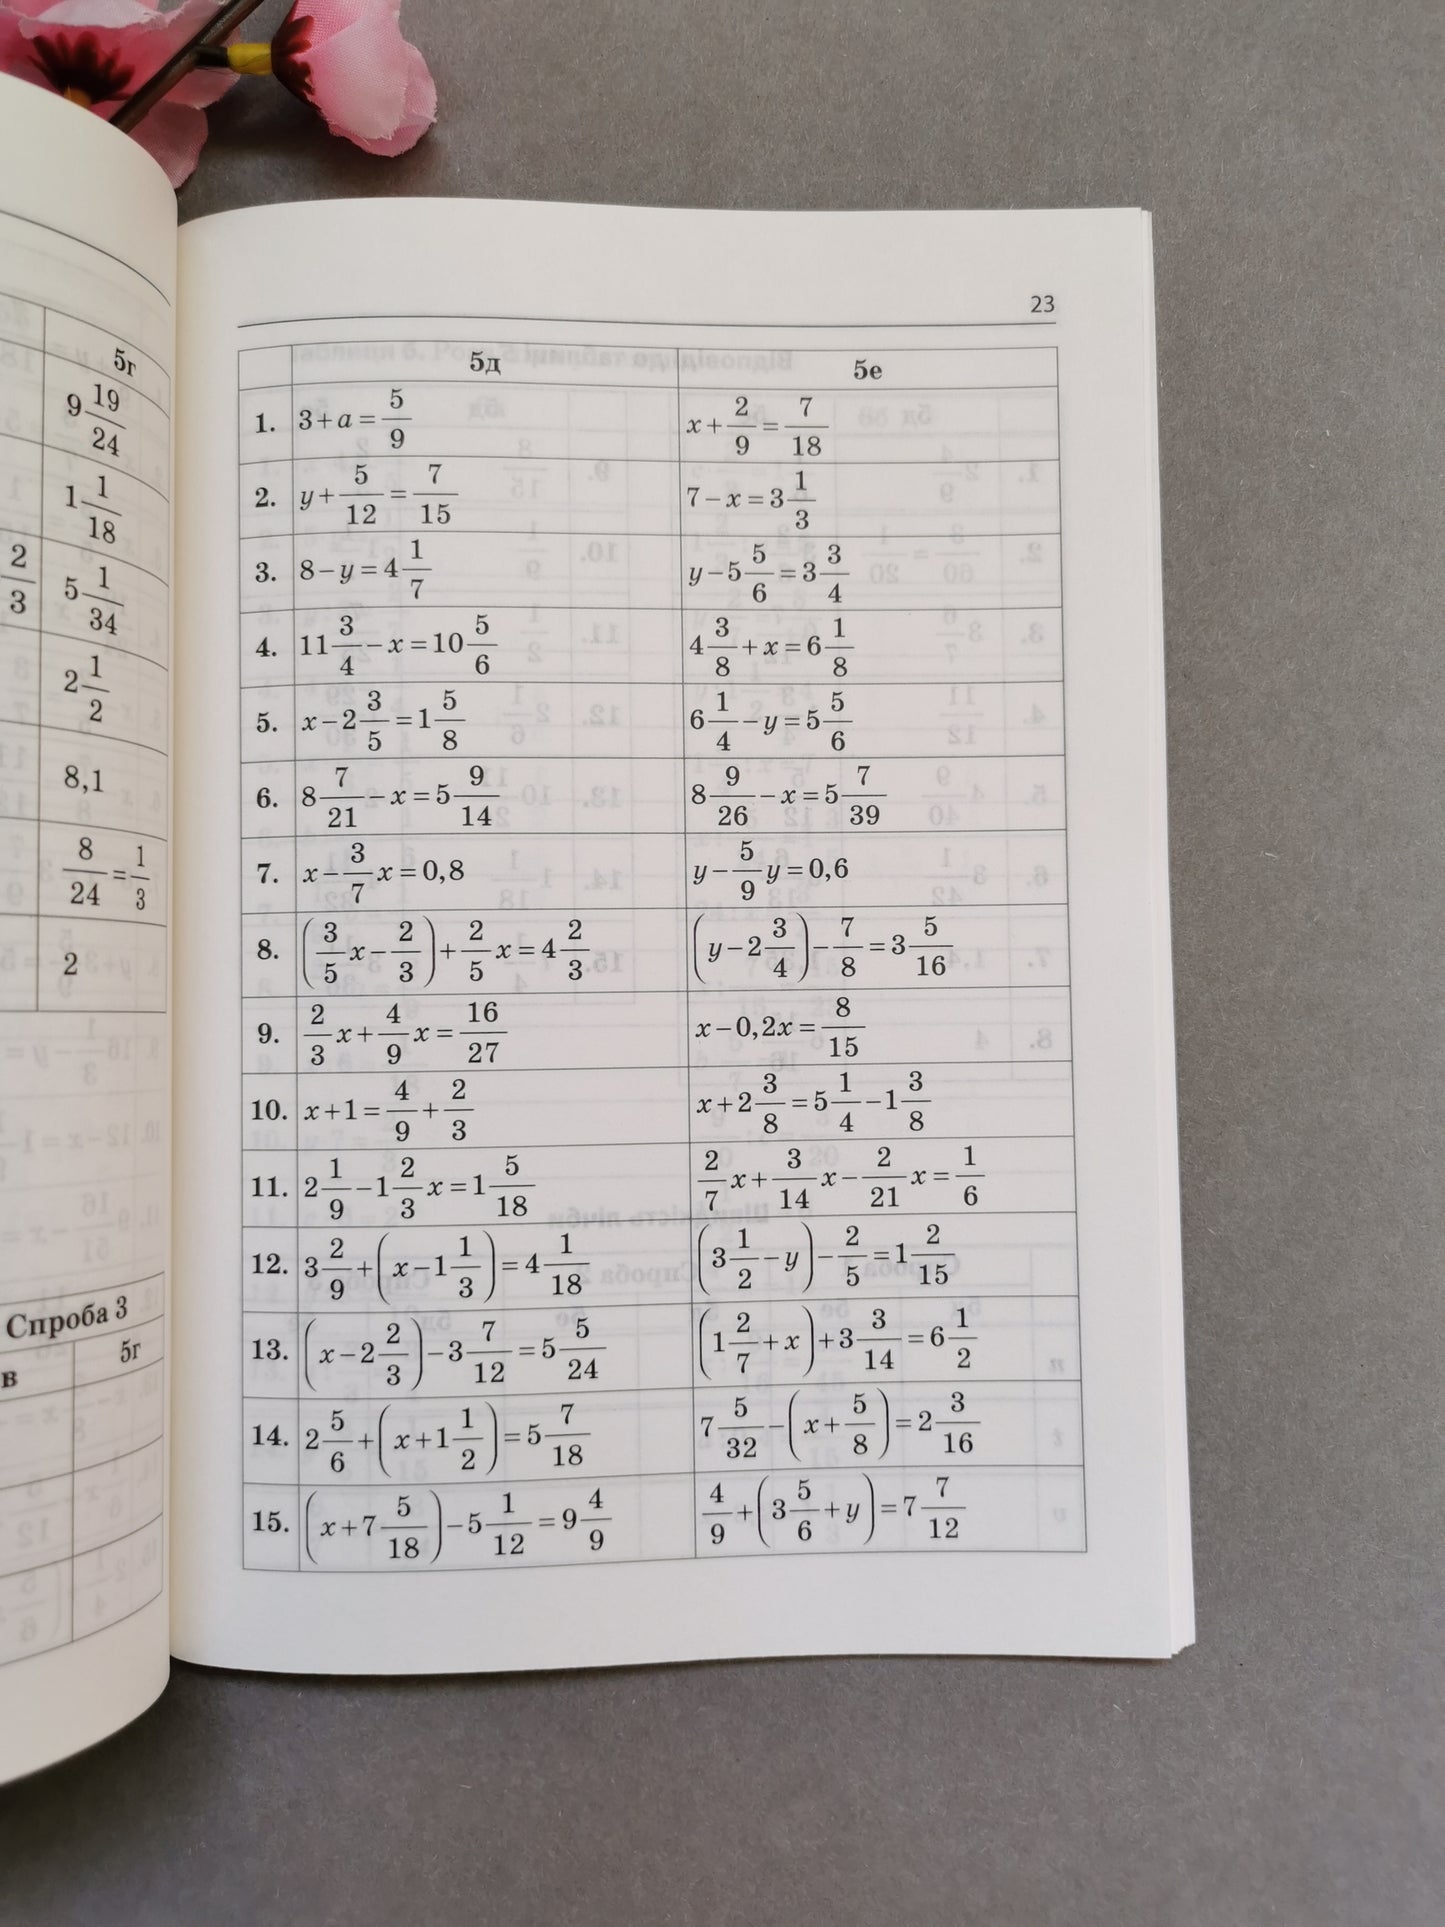 23
5г
9 19/24
1 1/18
2/3
5 1/34
2 1/2
8,1
8/24 = 1/3
2
Спроба 3
в 5г
5д 5е
1. 3 + a = 5/9 x + 2/9 = 7/18
2. y + 5/12 = 7/15 7 − x = 3 1/3
3. 8 − y = 4 1/7 y − 5 5/6 = 3 3/4
4. 11 3/4 − x = 10 5/6 4 3/8 + x = 6 1/8
5. x − 2 3/5 = 1 5/8 6 1/4 − y = 5 5/6
6. 8 7/21 − x = 5 9/14 8 9/26 − x = 5 7/39
7. x − 3/7 x = 0,8 y − 5/9 y = 0,6
8. (3/5 x − 2/3) + 2/5 x = 4 2/3 (y − 2 3/4) − 7/8 = 3 5/16
9. 2/3 x + 4/9 x = 16/27 x − 0,2x = 8/15
10. x + 1 = 4/9 + 2/3 x + 2 3/8 = 5 1/4 − 1 3/8
11. 2 1/9 − 1 2/3 x = 1 5/18 2/7 x + 3/14 x − 2/21 x = 1/6
12. 3 2/9 + (x − 1 1/3) = 4 1/18 (3 1/2 − y) − 2/5 = 1 2/15
13. (x − 2 2/3) − 3 7/12 = 5 5/24 (1 2/7 + x) + 3 3/14 = 6 1/2
14. 2 5/6 + (x + 1 1/2) = 5 7/18 7 5/32 − (x + 5/8) = 2 3/16
15. (x + 7 5/18) − 5 1/12 = 9 4/9 4/9 + (3 5/6 + y) = 7 7/12